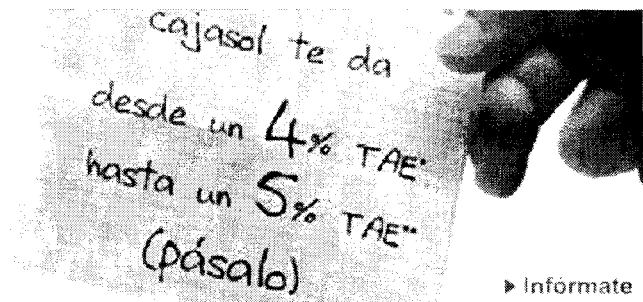 cajasol te da
desde un 4% TAE*
hasta un 5% TAE**
(pásalo)
▶ Infórmate